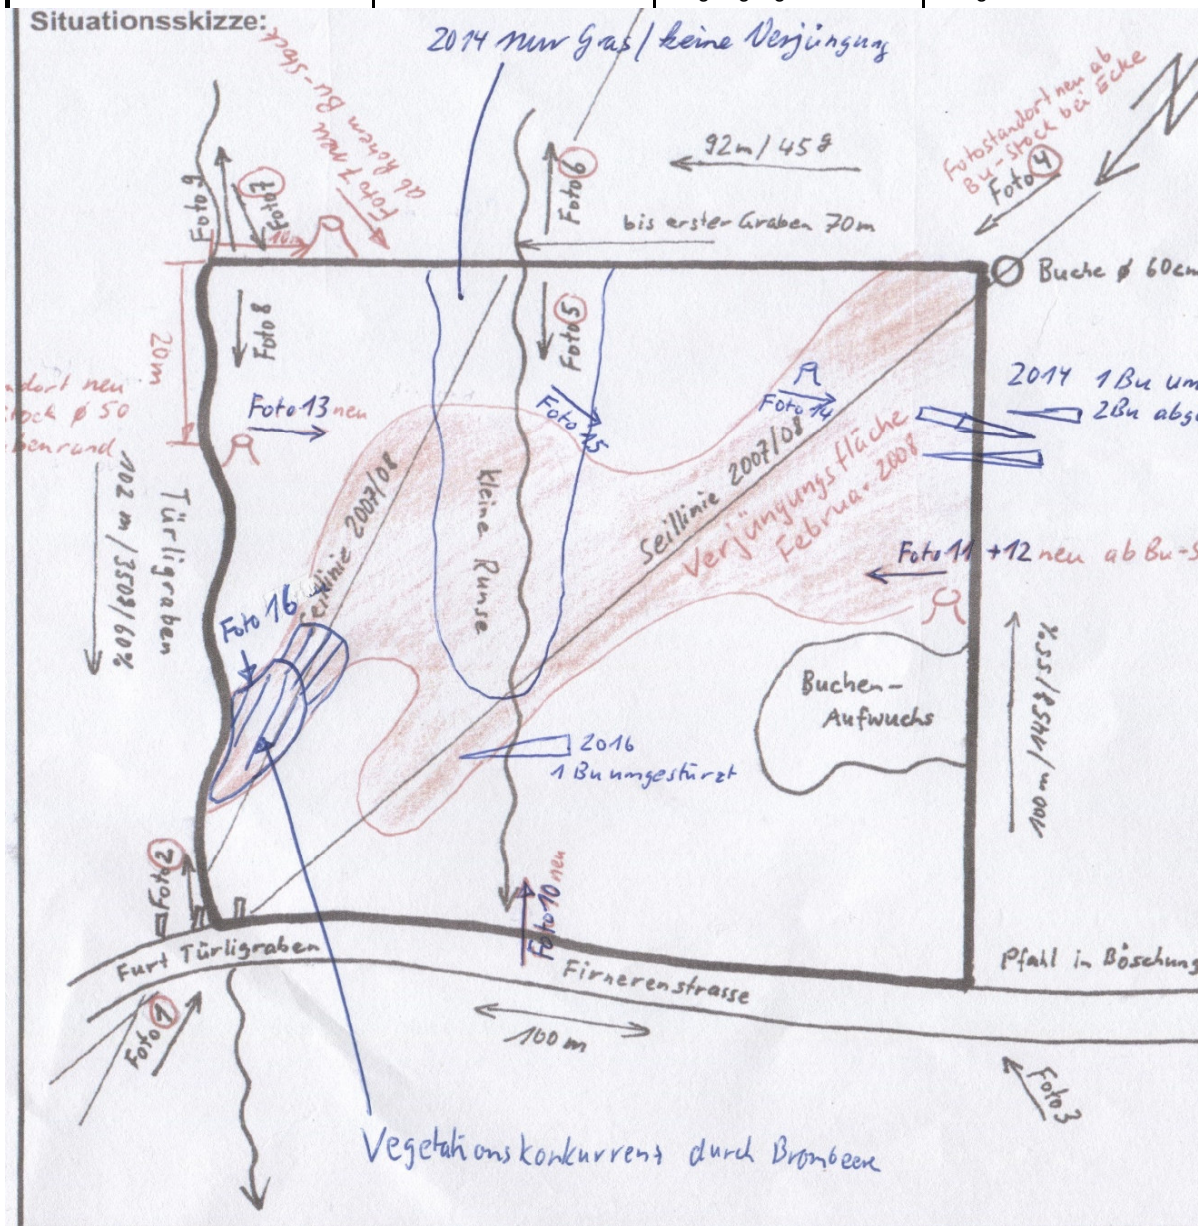 Situationsskizze:
2014 nur Gras / keine Verjüngung
Foto 7 neu
ab hohem Bu-Stock
Fotostandort neu ab
Bu-Stock bei Ecke
Foto 4
92m / 45g
bis erster Graben 70m
Foto 9
Foto 7
10m
Foto 6
Buche ø 60cm
Foto 8
Foto 5
20m
ndort neu
tock ø 50
benrand
Foto 13 neu
Foto 15
Foto 14
2014 1Bu um
2Bu abg
102 m / 350g / 60%
Türligraben
Seillinie 2007/08
kleine Runse
Seillinie 2007/08
Verjüngungsfläche
Februar 2008
Foto 11 + 12 neu ab Bu-S
Foto 16
Buchen-
Aufwuchs
100m / 145g / 55%
2016
1 Bu umgestürzt
Foto 2
Foto 10 neu
Furt Türligraben
Firnerenstrasse
Pfahl in Böschung
100 m
Foto 1
Foto 3
Vegetationskonkurrenz durch Brombeere